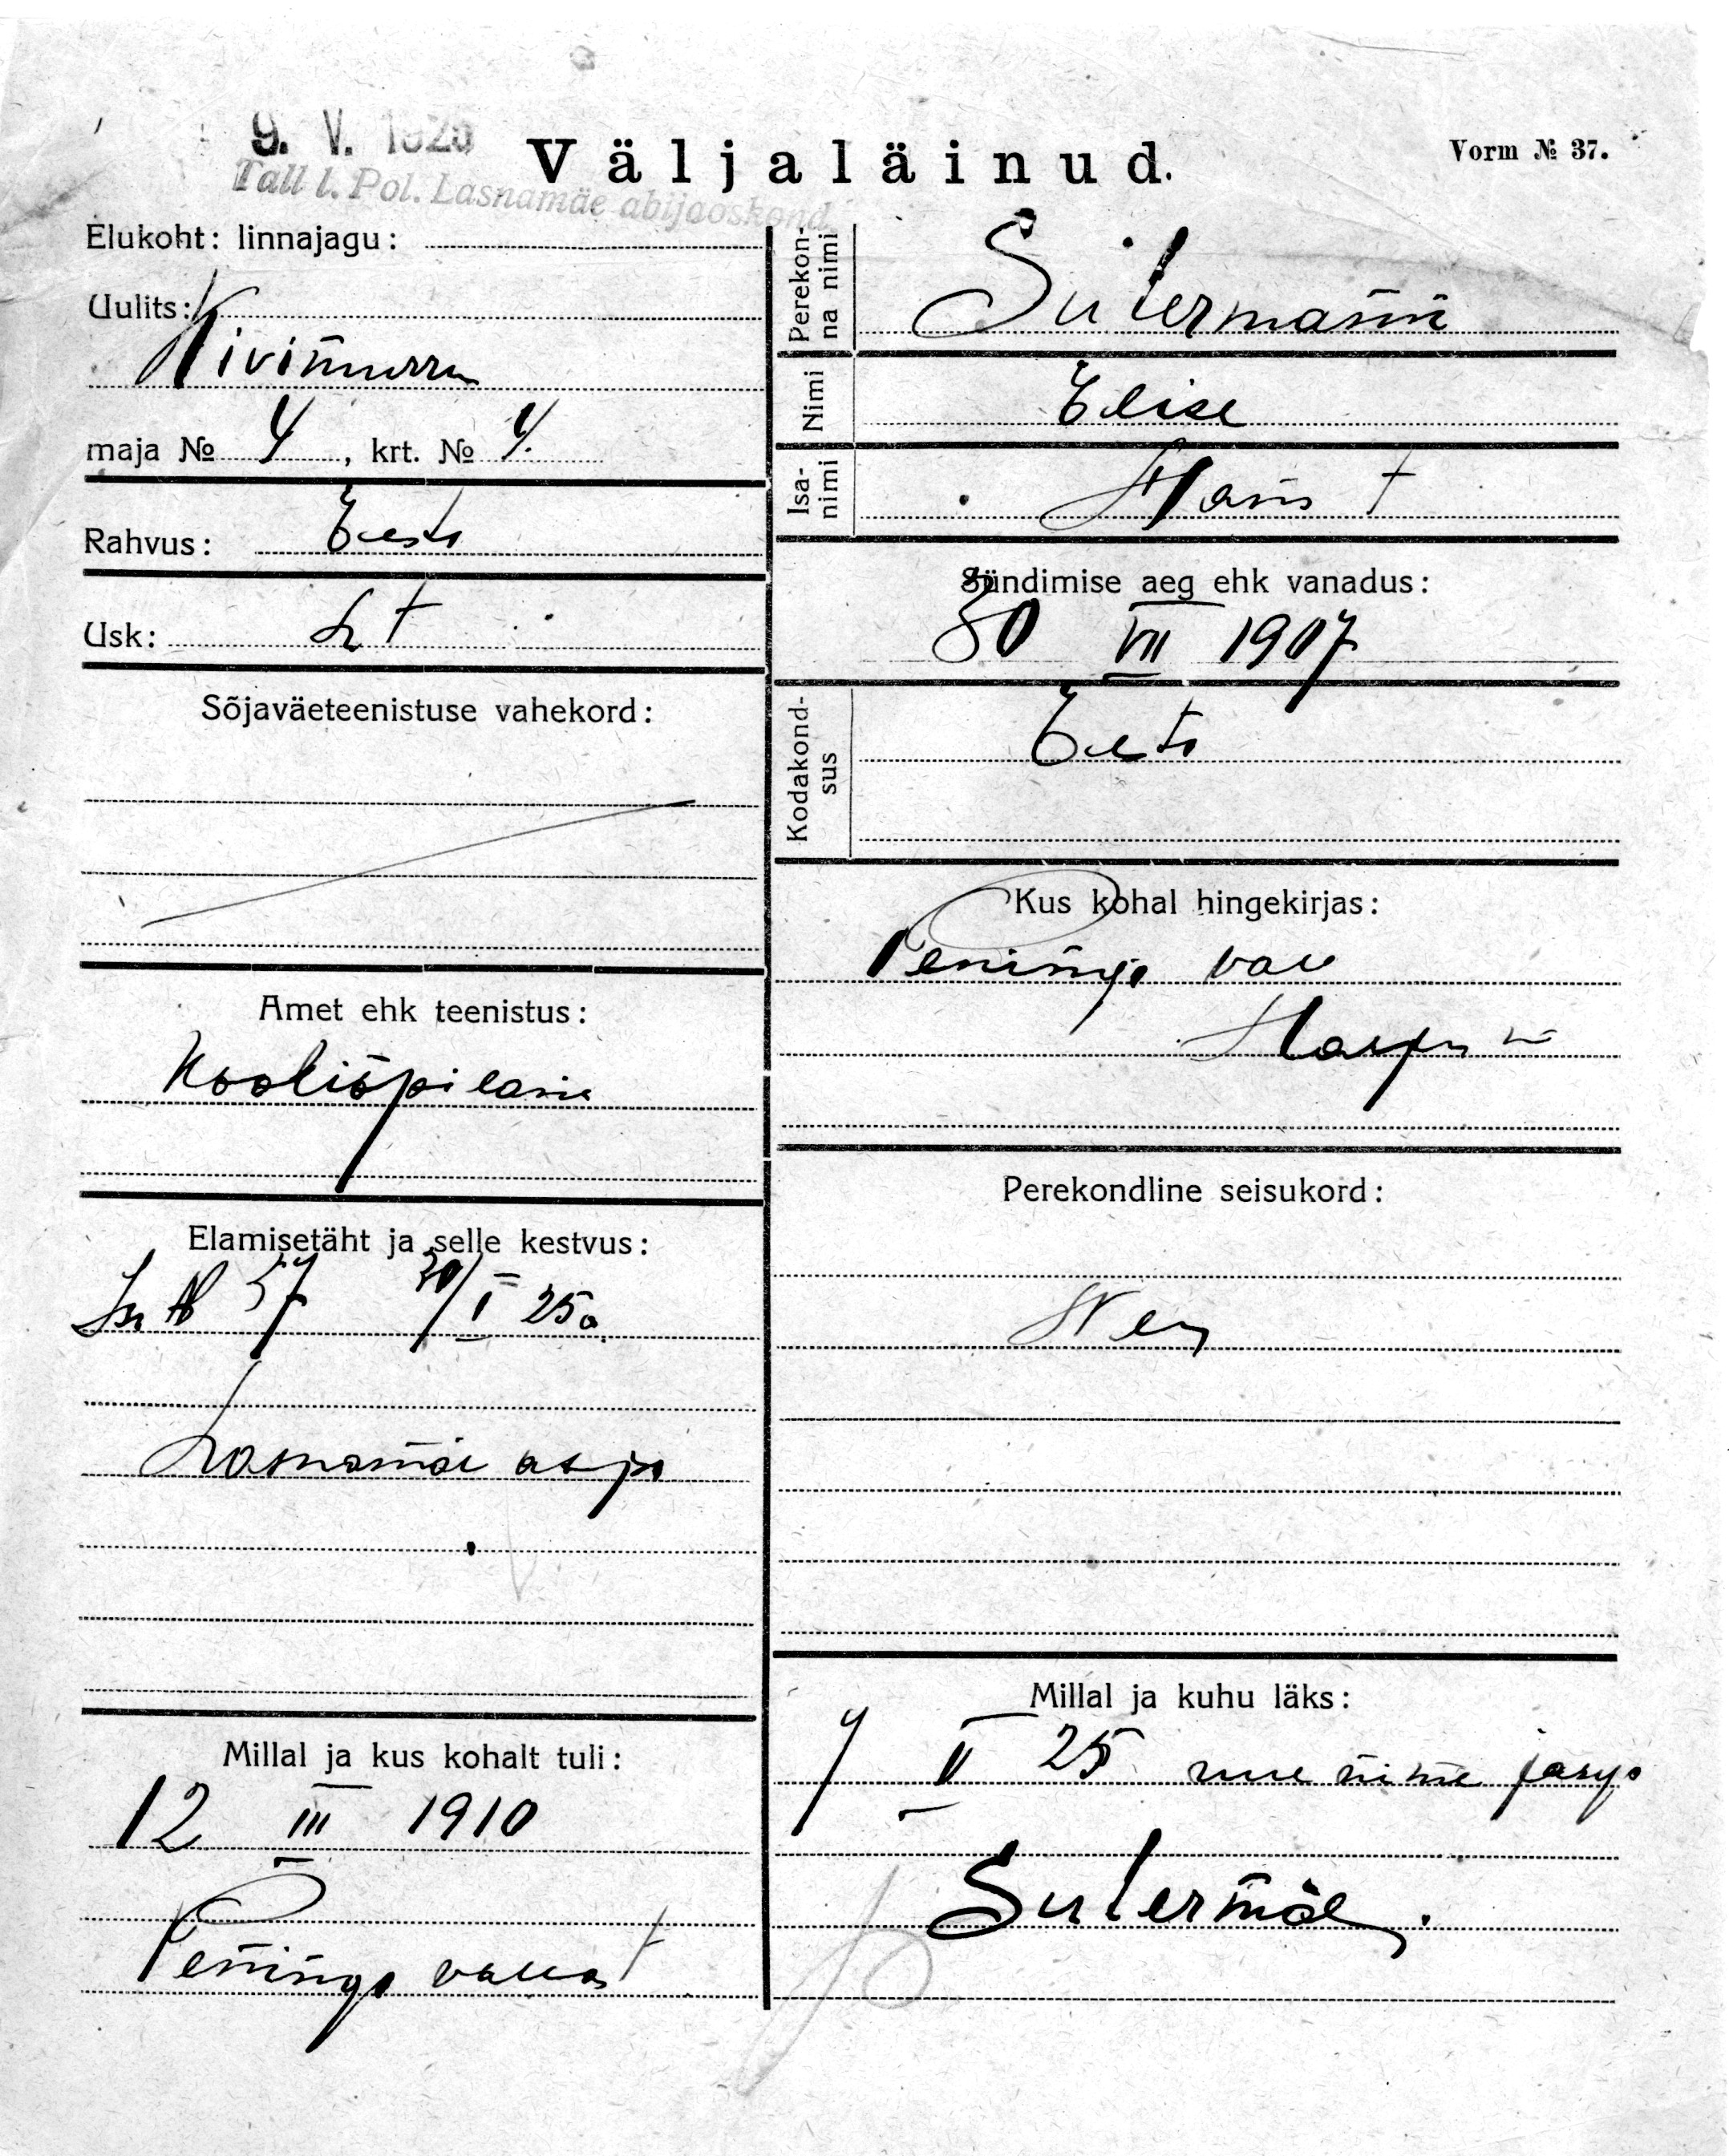 9. V. 1925
Tall l. Pol. Lasnamäe abijaoskond
Väljaläinud.
Vorm № 37.
Elukoht: linnajagu:
Uulits:
Kivimurru
maja № 4, krt. № 4.
Rahvus: Eesti
Usk: Lt
Sõjaväeteenistuse vahekord:
Amet ehk teenistus:
Kooliõpilane
Elamisetäht ja selle kestvus:
57 30/I 25a.
Lasnamäe
Millal ja kus kohalt tuli:
12 III 1910
Peningi vallast
Perekonna nimi
Sutermann
Nimi
Elise
Isanimi
Hans t
Sündimise aeg ehk vanadus:
30 VII 1907
Kodakondsus
Eesti
Kus kohal hingekirjas:
Peningi vall
Harju m
Perekondline seisukord:
Millal ja kuhu läks:
7 V 25 uue nime järge
Sutermäe.